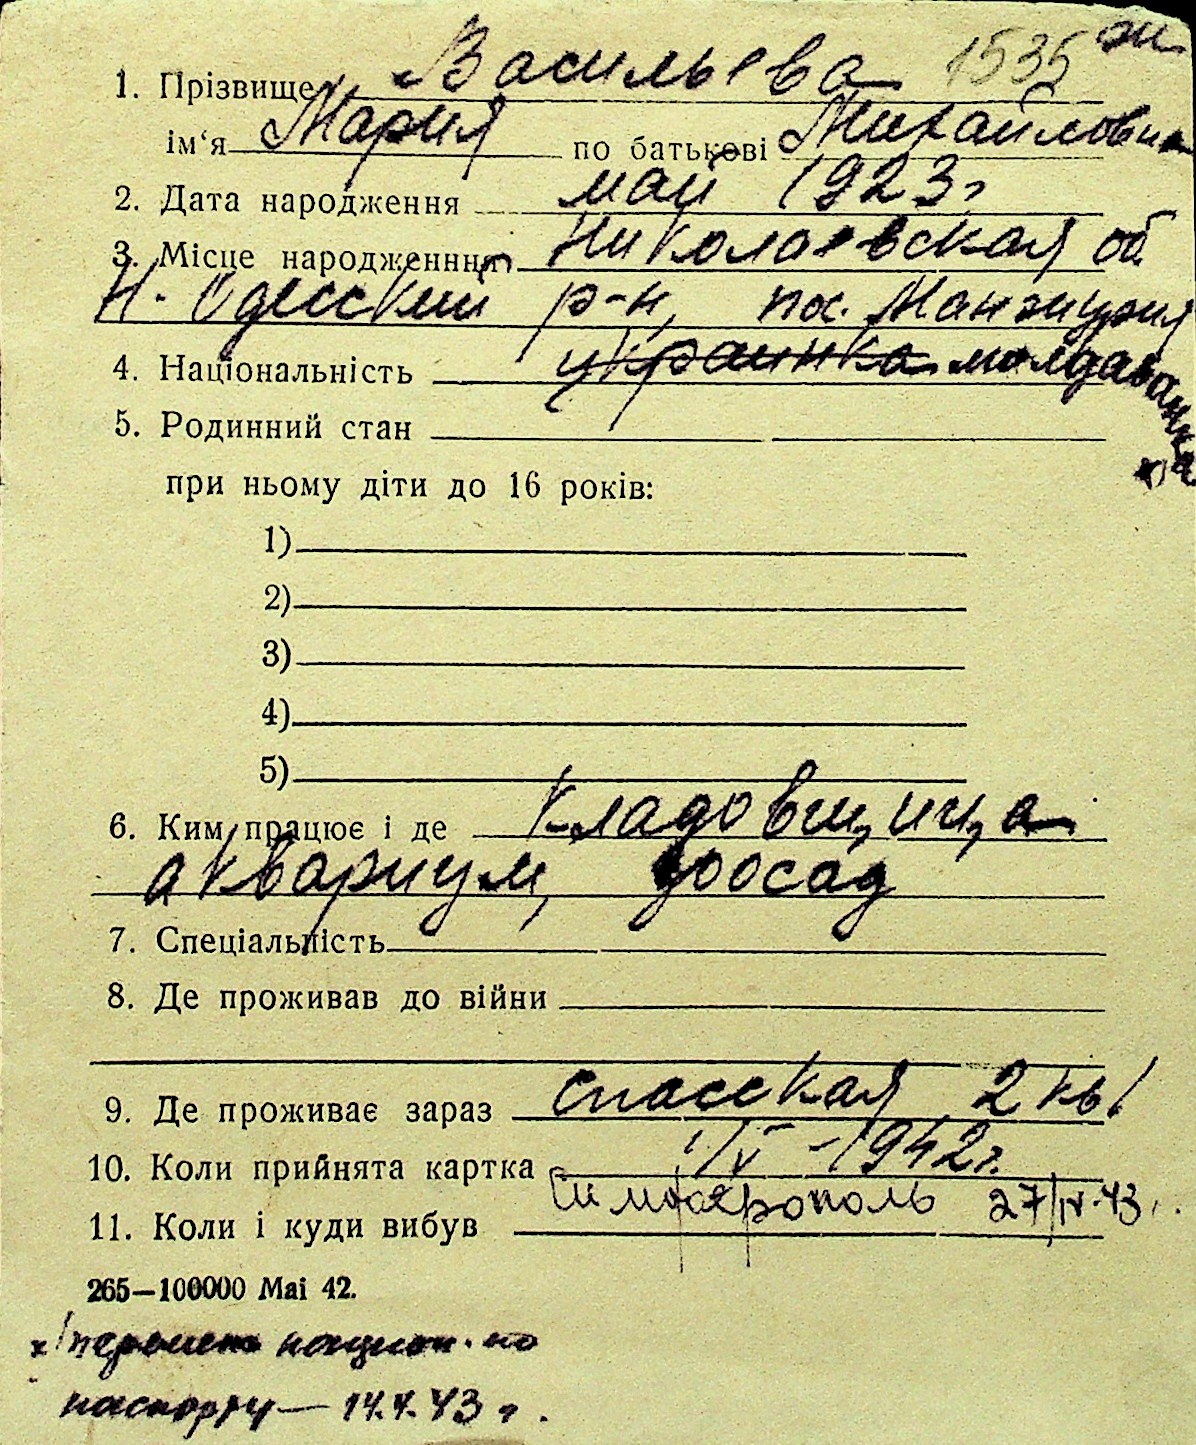 1535
1. Прізвище Васильева
ім‘я Мария по батькові Михайловна
2. Дата народження май 1923 г
3. Місце народженння Николаевская об
Н. Одесский р-н, пос. Манжурия
4. Національність украинка молдаванка х)
5. Родинний стан
при ньому діти до 16 років:
1)
2)
3)
4)
5)
6. Ким працює і де Кладовщица
аквариум, зоосад
7. Спеціальність
8. Де проживав до війни
9. Де проживає зараз Спасская 2 кв 1
10. Коли прийнята картка 1/V - 1942 г.
11. Коли і куди вибув Симферополь 27/IV-43 г.
265—100000 Mai 42.
х) национ. по
паспорту — 14.V.43 г.